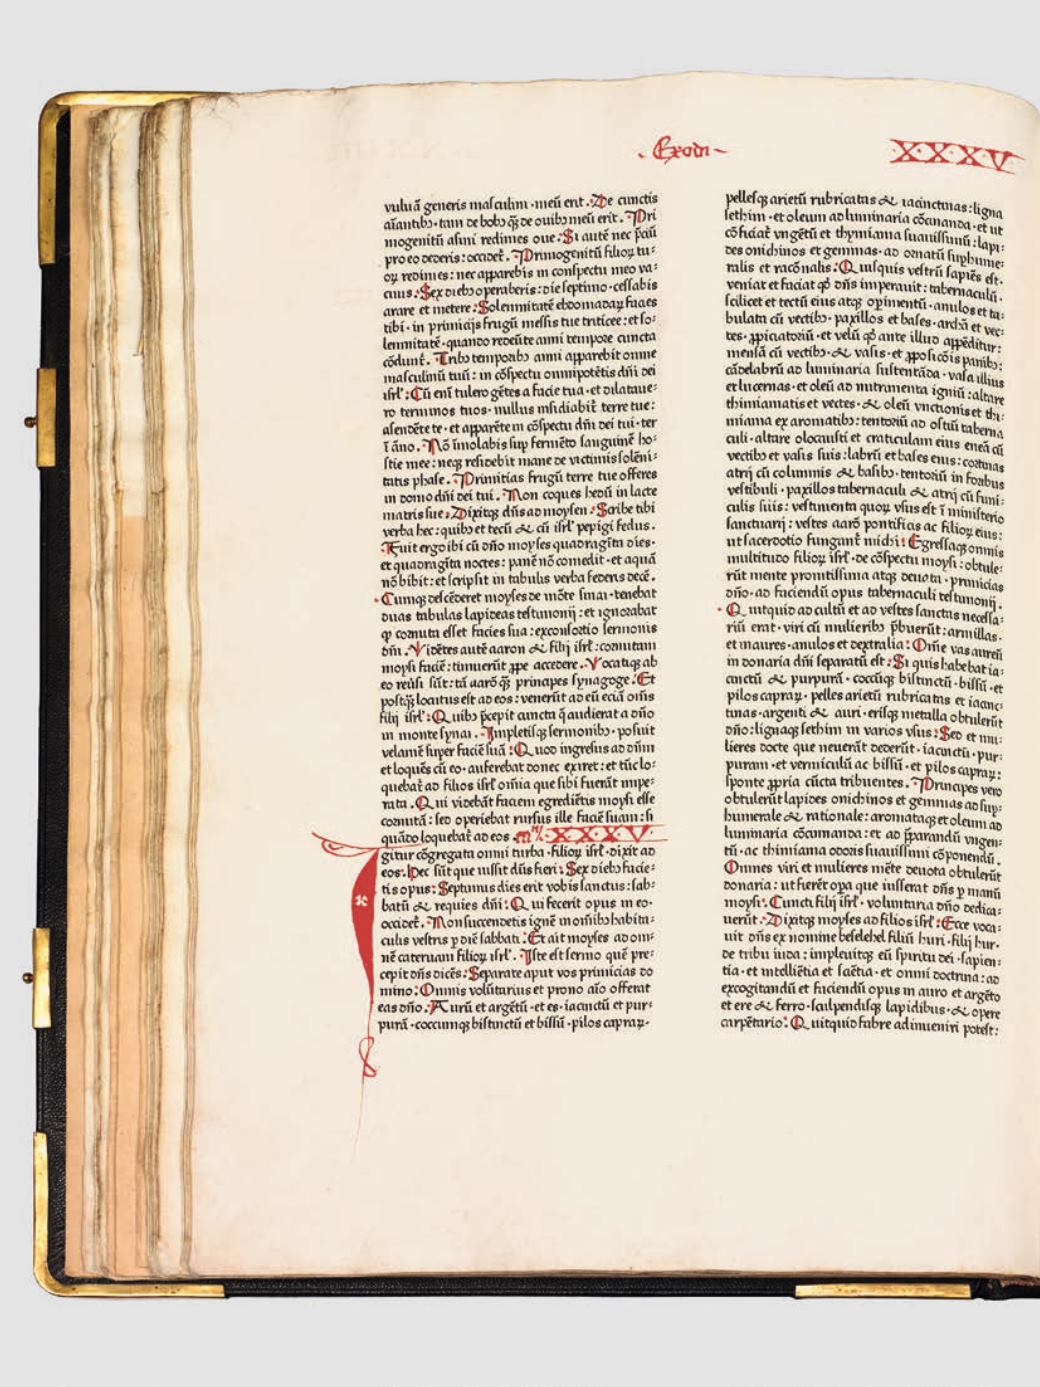 Exodi
XXXV
vuluā generis masculini·meū erit·De cunctis
aīantibꝫ·tam de bobꝫ qꝫ de ouibꝫ meū erit·Pri
mogenitū asini redimes oue:Si autē nec p̄ciū
pro eo dederis:occidet᷑·Primogenitū filioꝝ tu-
oꝝ redimes:nec apparebis in conspectu meo va-
cuus:Sex diebꝫ operaberis:die septimo·cessabis
arare et metere:Solemnitatē ebdomadaꝝ facies
tibi·in primicijs frugū messis tue triticee:et so-
lemnitatē·quando redeūte anni tempore cuncta
cōdunt᷑·Tribꝫ temporibꝫ anni apparebit omne
masculinū tuū:in cōspectu omnipotētis dn̄i dei
isrl̄:Cū eni tulero gētes a facie tua·et dilataue-
ro terminos tuos·nullus insidiabit᷑ terre tue:
ascendēte te·et apparēte in cōspectu dn̄i dei tui·ter
ī āno·Nō īmolabis sup fermēto sanguinē ho-
stie mee:neqꝫ residebit mane de victimis solēni-
tatis phase·Primitias frugū terre tue offeres
in domo dn̄i dei tui·Non coques hedū in lacte
matris sue:Dixitqꝫ dn̄s ad moysen:Scribe tibi
verba hec:quibꝫ et tecū & cū isrl̄·pepigi fedus·
Fuit ergo ibi cū dn̄o moyses quadragīta dies·
et quadragīta noctes:panē nō comedit·et aquā
nō bibit:et scripsit in tabulis verba federis decē·
Cumqꝫ descēderet moyses de mōte sinai·tenebat
duas tabulas lapideas testimonij:et ignorabat
ꝙ cornuta esset facies sua:ex consortio sermonis
dn̄i·Vidētes autē aaron & filij isrl̄:cornutam
moysi faciē:timuerūt ꝓpe accedere·Vocatiqꝫ ab
eo reūsi sūt:tā aarō qꝫ principes synagoge:Et
postqꝫ locutus est ad eos:venerūt ad eū eciā om̄s
filij isrl̄:Quibꝫ p̄cepit cuncta q̄ audierat a dn̄o
in monte synai·Impletisqꝫ sermonibꝫ·posuit
velamē super faciē suā:Quod ingressus ad dn̄m
et loquēs cū eo·auferebat donec exiret:et tūc lo-
quebat᷑ ad filios isrl̄ om̄ia que sibi fuerāt impe-
rata·Qui videbāt faciem egrediētis moysi esse
cornutā:sed operiebat rursus ille faciē suam:si
quādo loquebat᷑ ad eos·XXXV
Igitur cōgregata omni turba·filioꝝ isrl̄·dixit ad
eos·Hec sūt que iussit dn̄s fieri:Sex diebꝫ facie-
tis opus:Septimus dies erit vobis sanctus:sab-
batū & requies dn̄i:Qui fecerit opus in eo·
occidet᷑·Non succendetis ignē in om̄ibꝫ habita-
culis vestris p diē sabbati·Et ait moyses ad om-
nē cateruam filioꝝ isrl̄·Iste est sermo quē pre-
cepit dn̄s dicēs:Separate aput vos primicias do
mino:Omnis volūtarius et prono aīo offerat
eas dn̄o·Aurū et argētū·et es·iacinctū et pur-
purā·coccumqꝫ bistinctū et bissū·pilos capraꝝ·
pellesqꝫ arietū rubricatas & iacinctinas:ligna
sethim·et oleum ad luminaria cōcinanda·et ut
cōficiat᷑ vngētū et thymiama suauissimū:lapi-
des onichinos et gemmas·ad ornatū suphume-
ralis et racōnalis:Quisquis vestrū sapiēs est·
veniat et faciat qd̄ dn̄s imperauit:tabernaculū·
scilicet et tectū eius atqꝫ opimentū·anulos et ta-
bulata cū vectibꝫ·paxillos et bases·archā et vec-
tes·ꝓpiciatoriū·et velū qd̄ ante illud appēditur:
mensā cū vectibꝫ·& vasis·et ꝓposicōis panibꝫ:
cādelabrū ad luminaria sustentāda·vasa illius
et lucernas·et oleū ad nutramenta igniū:altare
thimiamatis et vectes·& oleū vnctionis et thi-
miama ex aromatibꝫ:tentoriū ad ostiū taberna
culi·altare olocausti et craticulam eius eneā cū
vectibꝫ et vasis suis:labrū et bases eius:cortinas
atrij cū columnis & basibꝫ·tentoriū in foribus
vestibuli·paxillos tabernaculi & atrij cū funi-
culis suis:vestimenta quoꝝ vsus est ī ministerio
sanctuarij:vestes aarō pontificis ac filioꝝ eius:
ut sacerdotio fungant᷑ michi:Egressaqꝫ omnis
multitudo filioꝝ isrl̄·de cōspectu moysi:obtule-
rūt mente promtissima atqꝫ deuota·primicias
dn̄o·ad faciendū opus tabernaculi testimonij·
Quitquid ad cultū et ad vestes sanctas necessa-
riū erat·viri cū mulieribꝫ p̄buerūt:armillas·
et inaures·anulos et dextralia:Om̄e vas aureū
in donaria dn̄i separatū est:Si quis habebat ia-
cinctū & purpurā·coccūqꝫ bistinctū·bissū·et
pilos capraꝝ·pelles arietū rubricatas et iacinc-
tinas·argenti & auri·erisqꝫ metalla obtulerūt
dn̄o:lignaqꝫ sethim in varios vsus:Sed et mu-
lieres docte que neuerāt dederūt·iacinctū·pur-
puram·et vermiculū ac bissū·et pilos capraꝝ:
sponte ꝓpria cūcta tribuentes·Principes vero
obtulerūt lapides onichinos et gemmas ad sup-
humerale & rationale:aromataqꝫ et oleum ad
luminaria cōcinanda:et ad p̄parandū vngen-
tū·ac thimiama odoris suauissimi cōponendū·
Omnes viri et mulieres mēte deuota obtulerūt
donaria:ut fierēt opa que iusserat dn̄s p manū
moysi:Cuncti filij isrl̄·voluntaria dn̄o dedica-
uerūt·Dixitqꝫ moyses ad filios isrl̄:Ecce voca-
uit dn̄s ex nomine beselehel filiū huri·filij hur·
de tribu iuda:impleuitqꝫ eū spiritu dei·sapien-
tia·et intelliētia et sciētia·et omni doctrina:ad
excogitandū et faciendū opus in auro et argēto
et ere & ferro·sculpendisqꝫ lapidibus·& opere
carpētario:Quitquid fabre adinueniri potest: